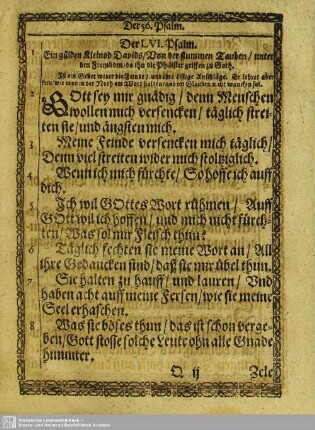 Der 56. Psalm.
Der LVI. Psalm.
Ein gülden Kleinod Davids / Von der stummen Tauben / unter
den Frembden / da ihn die Philister griffen zu Gath.
Ist ein Gebet wider die Feinde / und ihre listige Anschläge. Er lehret aber
wie man in der Noth am Wort halten / und im Glauben nicht wancken sol.
2 GOtt sey mir gnädig / denn Menschen
wollen mich versencken / täglich strei-
ten sie / und ängsten mich.
3 Meine Feinde versencken mich täglich /
Denn viel streiten wider mich stoltziglich.
4 Wenn ich mich fürchte / So hoffe ich auff
dich.
5 Ich wil GOttes Wort rühmen / Auff
GOtt wil ich hoffen / und mich nicht fürch-
ten / Was solt mir Fleisch thun?
6 Täglich fechten sie meine Wort an / All
ihre Gedancken sind / daß sie mir übel thun.
7 Sie halten zu hauff / und lauren / Und
haben acht auff meine Fersen / wie sie meine
Seel erhaschen.
8 Was sie böses thun / das ist schon verge-
ben / Gott stosse solche Leute ohn alle Gnade
hinunter.
Q ij Zele